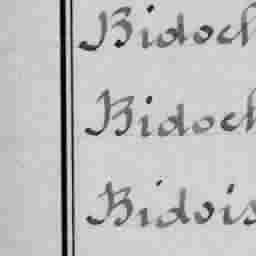 Bidoch
Bidoch
Bidois